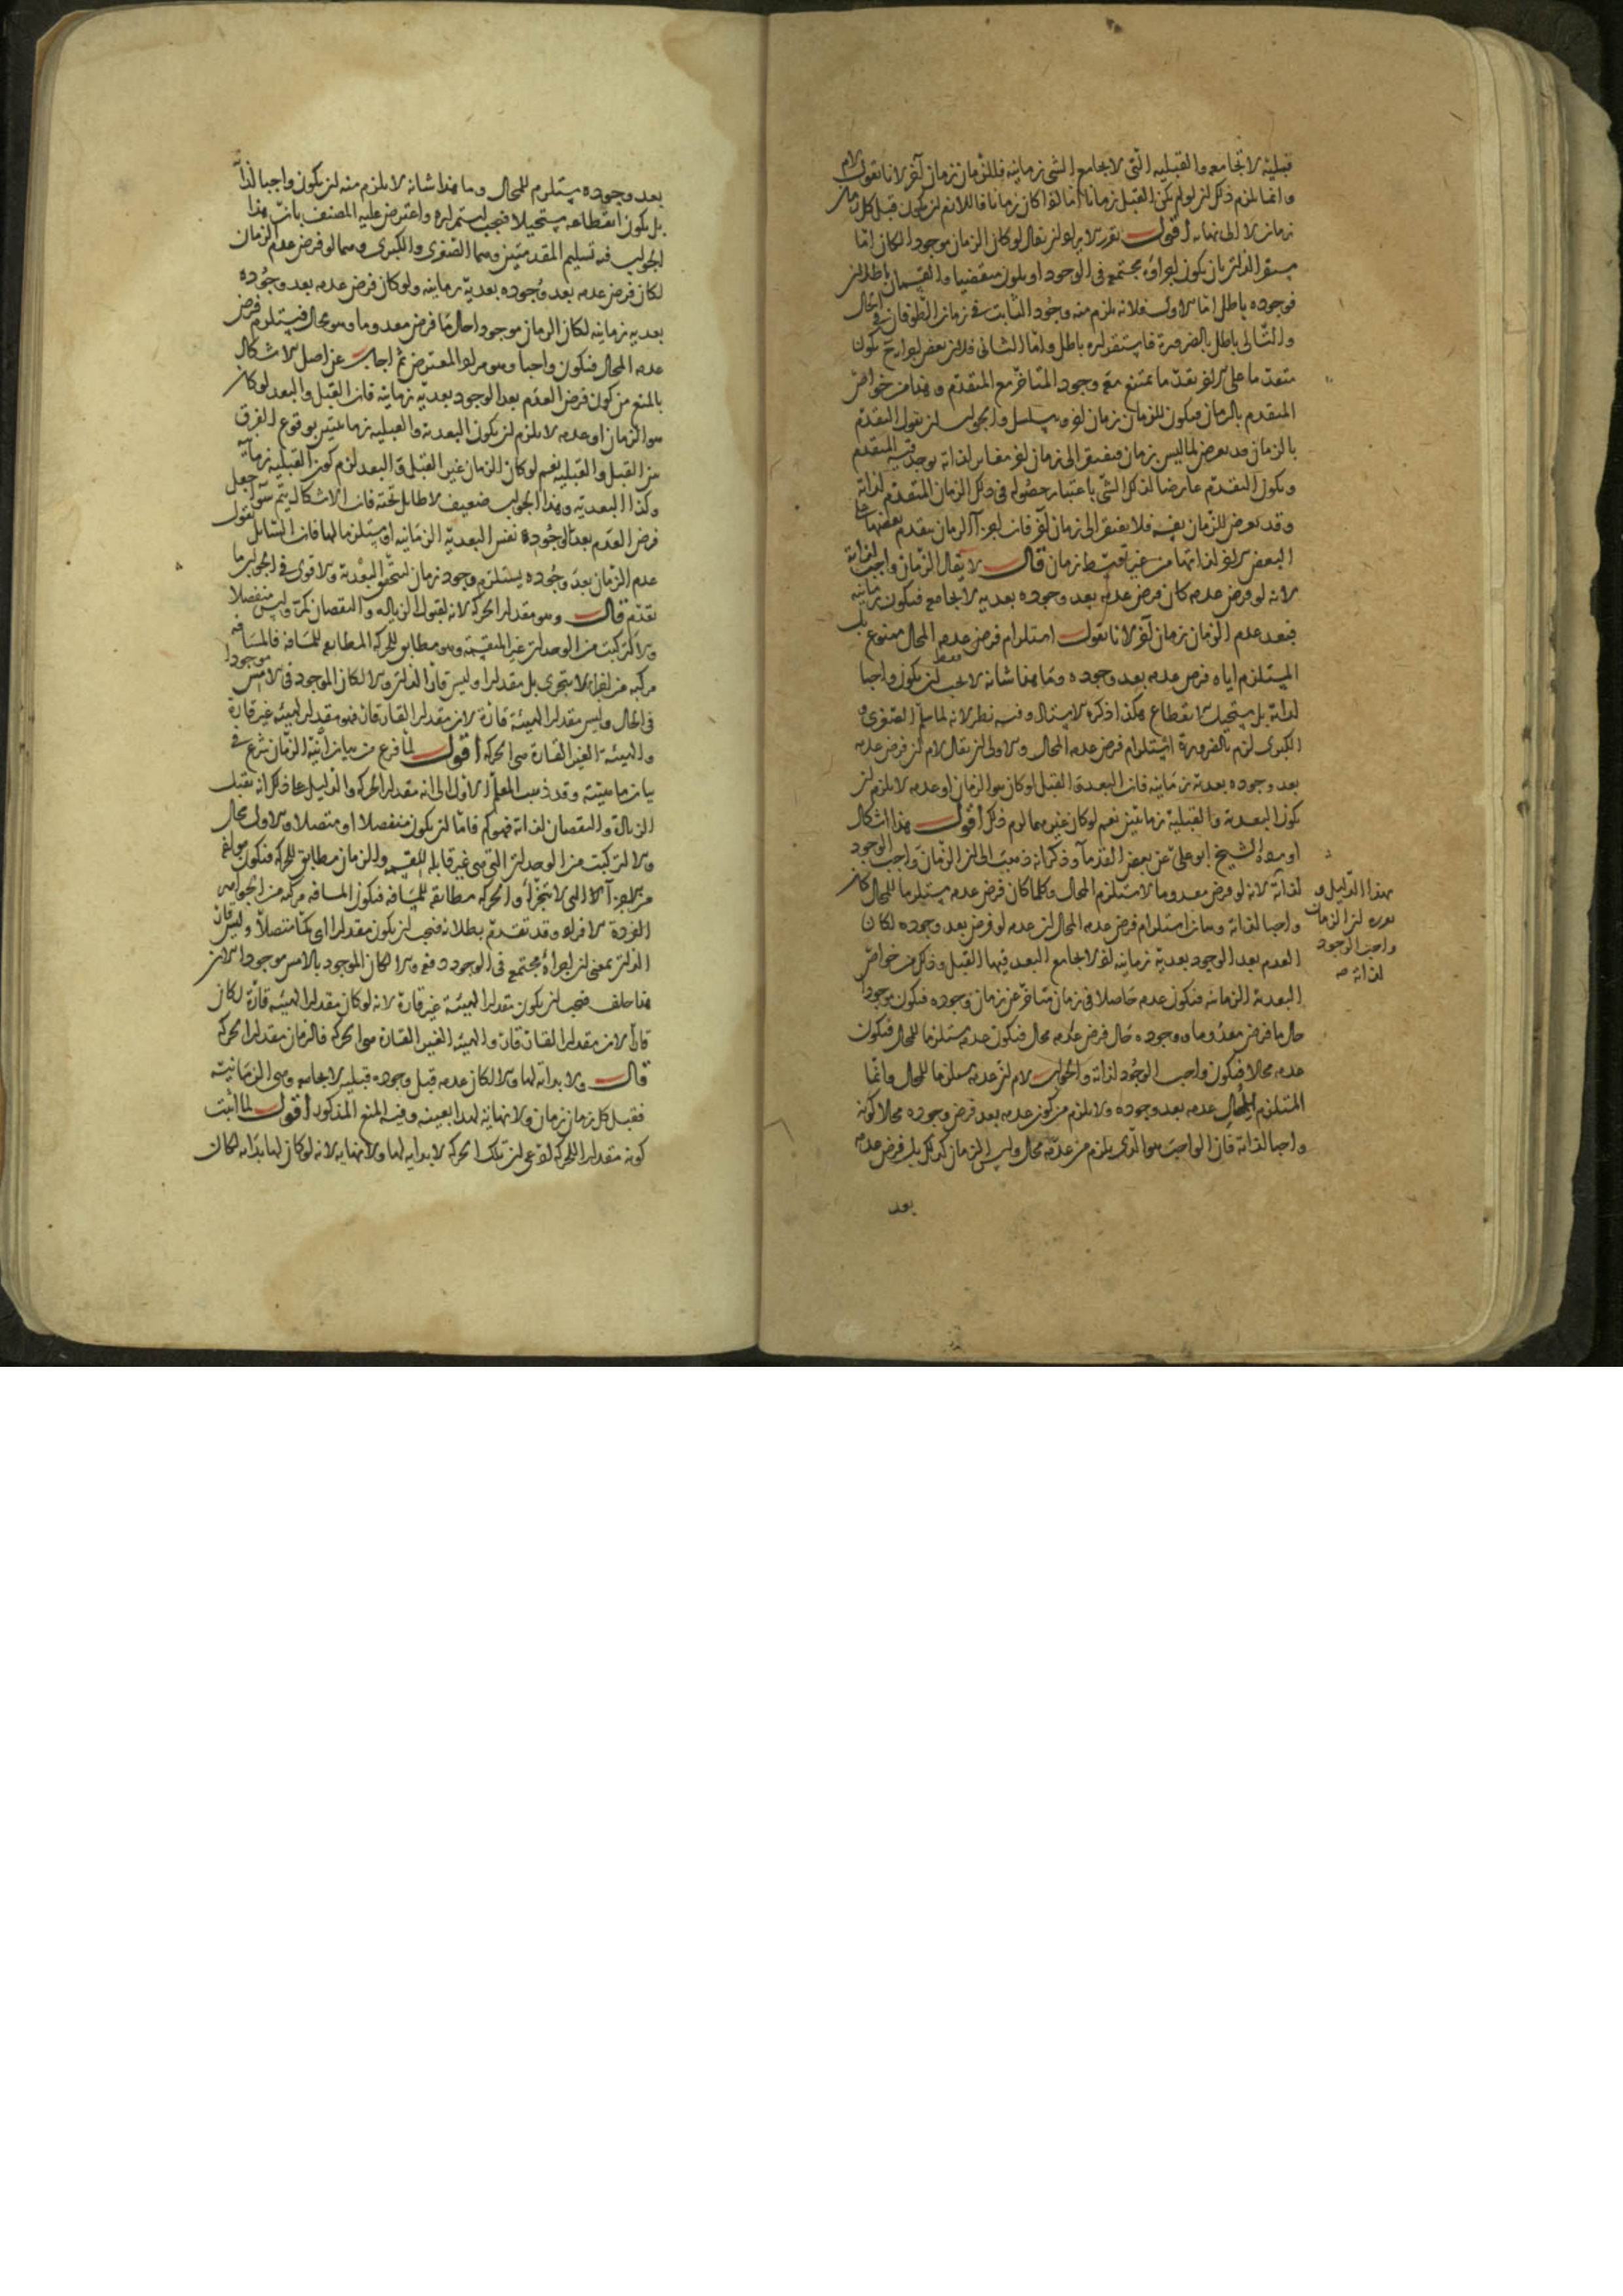 قبلية لا تجامعه والقبلية التي لا يجامع الشي زمانية فللزمان زمان آخر لانا نقول لام
وانما يلزم ذلك ان لو لم يكن القبل زمانا اما اذا كان زمانا فلا لانم ان يكون قبل كل زمان
زمان لا الى نهاية اقول تقرير الايراد ان يقال لو كان الزمان موجودا لكان اما
مستقر الذات بان يكون اجزاؤه مجتمع في الوجود او يكون متقضيا والقسمان باطلان
فوجوده باطل اما الاول فلانه يلزم منه وجود الثابت في زمان الطوفان في الحال
والتالي باطل بالضرورة فاستقراره باطل واما الثاني فلان بعض اجزائه ح يكون
متقدما على الاخر تقدما يمتنع معه وجود المتاخر مع المتقدم وهذا من خواص
المتقدم بالزمان فيكون للزمان زمان اخر ويتسلسل والجواب ان نقول التقدم
بالزمان قد يعرض لما ليس بزمان فيفتقر الى زمان اخر مغاير لذاته يوجد فيه المتقدم
ويكون التقدم عارضا لذلك الشي باعتبار حصوله في ذلك الزمان المتقدم لذاته
وقد يعرض للزمان نفسه فلا يفتقر الى زمان آخر فان اجزآ الزمان يتقدم بعضها على
البعض الاخر لذاتها من غير توسط زمان قال لا يقال الزمان واجب لذاته
لانه لو فرض عدمه كان فرض عدمه بعد وجوده بعدية لا يجامع فيكون زمانية
فبعد عدم الزمان زمان آخر لانا نقول استلزام فرض عدمه المحال ممنوع بل
المستلزم اياه فرض عدمه بعد وجوده فقط وما هذا شانه لا يجب ان يكون واجبا
لذاته بل يستحيل انقطاع هكذا ذكره الاستاذ وفيه نظر لانه لما سلم الصغرى و
الكبرى لزم بالضرورة استلزام فرض عدمه المحال والاولى ان يقال لام ان فرض عدمه
بعد وجوده بعدية زمانية فان البعد والقبل لو كان هو الزمان او عدمه لا يلزم ان
يكون البعدية والقبلية زمانيتين نعم لو كان غيرهما لزم ذلك اقول هذا اشكال
اورده الشيخ ابو علي عن بعض القدمآ وذكر انه ذهب الى ان الزمان واجب الوجود
لذاته لانه لو فرض معدوما لاستلزم المحال وكلما كان فرض عدمه مستلزما للمحال كان
واجبا لذاته وبيان استلزام فرض عدمه المحال ان عدمه لو فرض بعد وجوده لكان
العدم بعد الوجود بعدية زمانية اذ لا يجامع البعد فيها القبل وذلك من خواص
البعدية الزمانية فيكون عدمه حاصلا في زمان متاخر عن زمان وجوده فيكون موجودا
حال ما فرض معدوما ووجوده حال فرض عدمه محال فيكون عدمه مستلزما للمحال فيكون
عدمه محالا فيكون واجب الوجود لذاته والجواب لام ان عدمه مستلزما للمحال وانما
المستلزم للمحال عدمه بعد وجوده ولا يلزم من كون عدمه بعد فرض وجوده محالا كونه
واجبا لذاته فان الواجب هو الذي يلزم من عدمه محال وليس الزمان كذلك بل فرض عدمه
بعد
بهذا الدليل و
ان الزمان
واجب الوجود
لذاته صح
بعد وجوده يستلزم للمحال وما هذا شانه لا يلزم منه ان يكون واجبا لذاته
بل يكون انقطاعه مستحيلا فيجب استمراره واعترض عليه المصنف بان هذا
الجواب فيه تسليم المقدمتين وهما الصغرى والكبرى وهما لو فرض عدم الزمان
لكان فرض عدمه بعد وجوده بعدية زمانية ولو كان فرض عدمه بعد وجوده
بعدية زمانية لكان الزمان موجودا حال ما فرض معدوما وهو محال فيستلزم فرض
عدمه المحال فيكون واجبا وهو مراد المعترض ثم اجاب عن اصل الاشكال
بالمنع من كون فرض العدم بعد الوجود بعدية زمانية فان القبل والبعد لو كان
هو الزمان او عدمه لا يلزم ان يكون البعدية والقبلية زمانيتين بوقوع الفرق
بين القبل والقبلية نعم لو كان الزمان غير القبل والبعد لزم كون القبلية زمانية
وكذا البعدية وهذا الجواب ضعيف لا طايل تحته فان الاشكال يتم سوا جعل
فرض العدم بعد الوجوده نفس البعدية الزمانية او مستلزما لها فان السائل يقول
عدم الزمان بعد وجوده يستلزم وجود زمان لتحقق البعدية والاقوى في الجواب ما
تقدم قال وهو مقدار الحركة لانه لقبول الزيادة والنقصان كم وليس منفصلا
والا لتركبت من الوحدات غير المنقسمة وهو مطابق للحركة المطابقة للمسافة فالمسافة
مركبة من اجزاء لا يتجزى بل مقدارا وليس قار الذات والا لكان الموجود في الامس موجودا
في الحال وليس مقدار الهيئة قارة لان مقدار القار قار فهو مقدار لهيئة غير قارة
والهيئة الغير القارة هي الحركة اقول لما فرغ من بيان آنية الزمان شرع في
بيان ماهيته وقد ذهب المعلم الاول الى انه مقدار الحركة والدليل على ذلك انه يقبل
الزيادة والنقصان لذاته فهو كم فاما ان يكون منفصلا او متصلا والاول محال
والا لتركبت من الوحدات التي هي غير قابلة للقسمة والزمان مطابق للحركة فيكون مولفا
من الاجزآ التي لا يتجزأ والحركة مطابقة للمسافة فيكون المسافة مركبة من الجواهر
الفردة الافراد وقد تقدم بطلانه فيجب ان يكون مقدارا اي كما متصلا وليس قار
الذات بمعنى ان اجزاءه مجتمع في الوجود دفعة والا لكان الموجود بالامس موجودا الان
هذا خلف فيجب ان يكون مقدارا لهيئة غير قارة لانه لو كان مقدارا لهيئة قارة لكان
قارا لان مقدار القار قار والهيئة الغير القارة هي الحركة فالزمان مقدار الحركة
قال ولا بداية لها والا لكان عدمه قبل وجوده قبلية لا يجامعه وهي الزمانية
فقبل كل زمان زمان ولا نهاية لهذا بعينه وفيه المنع المذكور اقول لما اثبت
كونه مقدارا للحركة ادعى ان تلك الحركة لا بداية لها ولا نهاية لانه لو كان لها بداية لكان